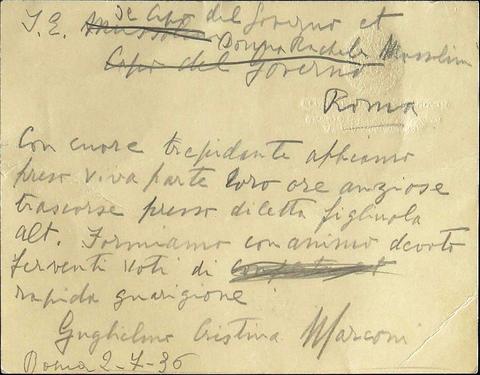 S. E. il Capo del Governo et
Donna Rachele Mussolini
Capo del Governo
Roma
Con cuore trepidante abbiamo
preso viva parte loro ore anziose
trascorse presso diletta figliuola
alt. Formiamo con animo devoto
ferventi voti di
rapida guarigione
Guglielmo Cristina Marconi
Roma 2-7-36